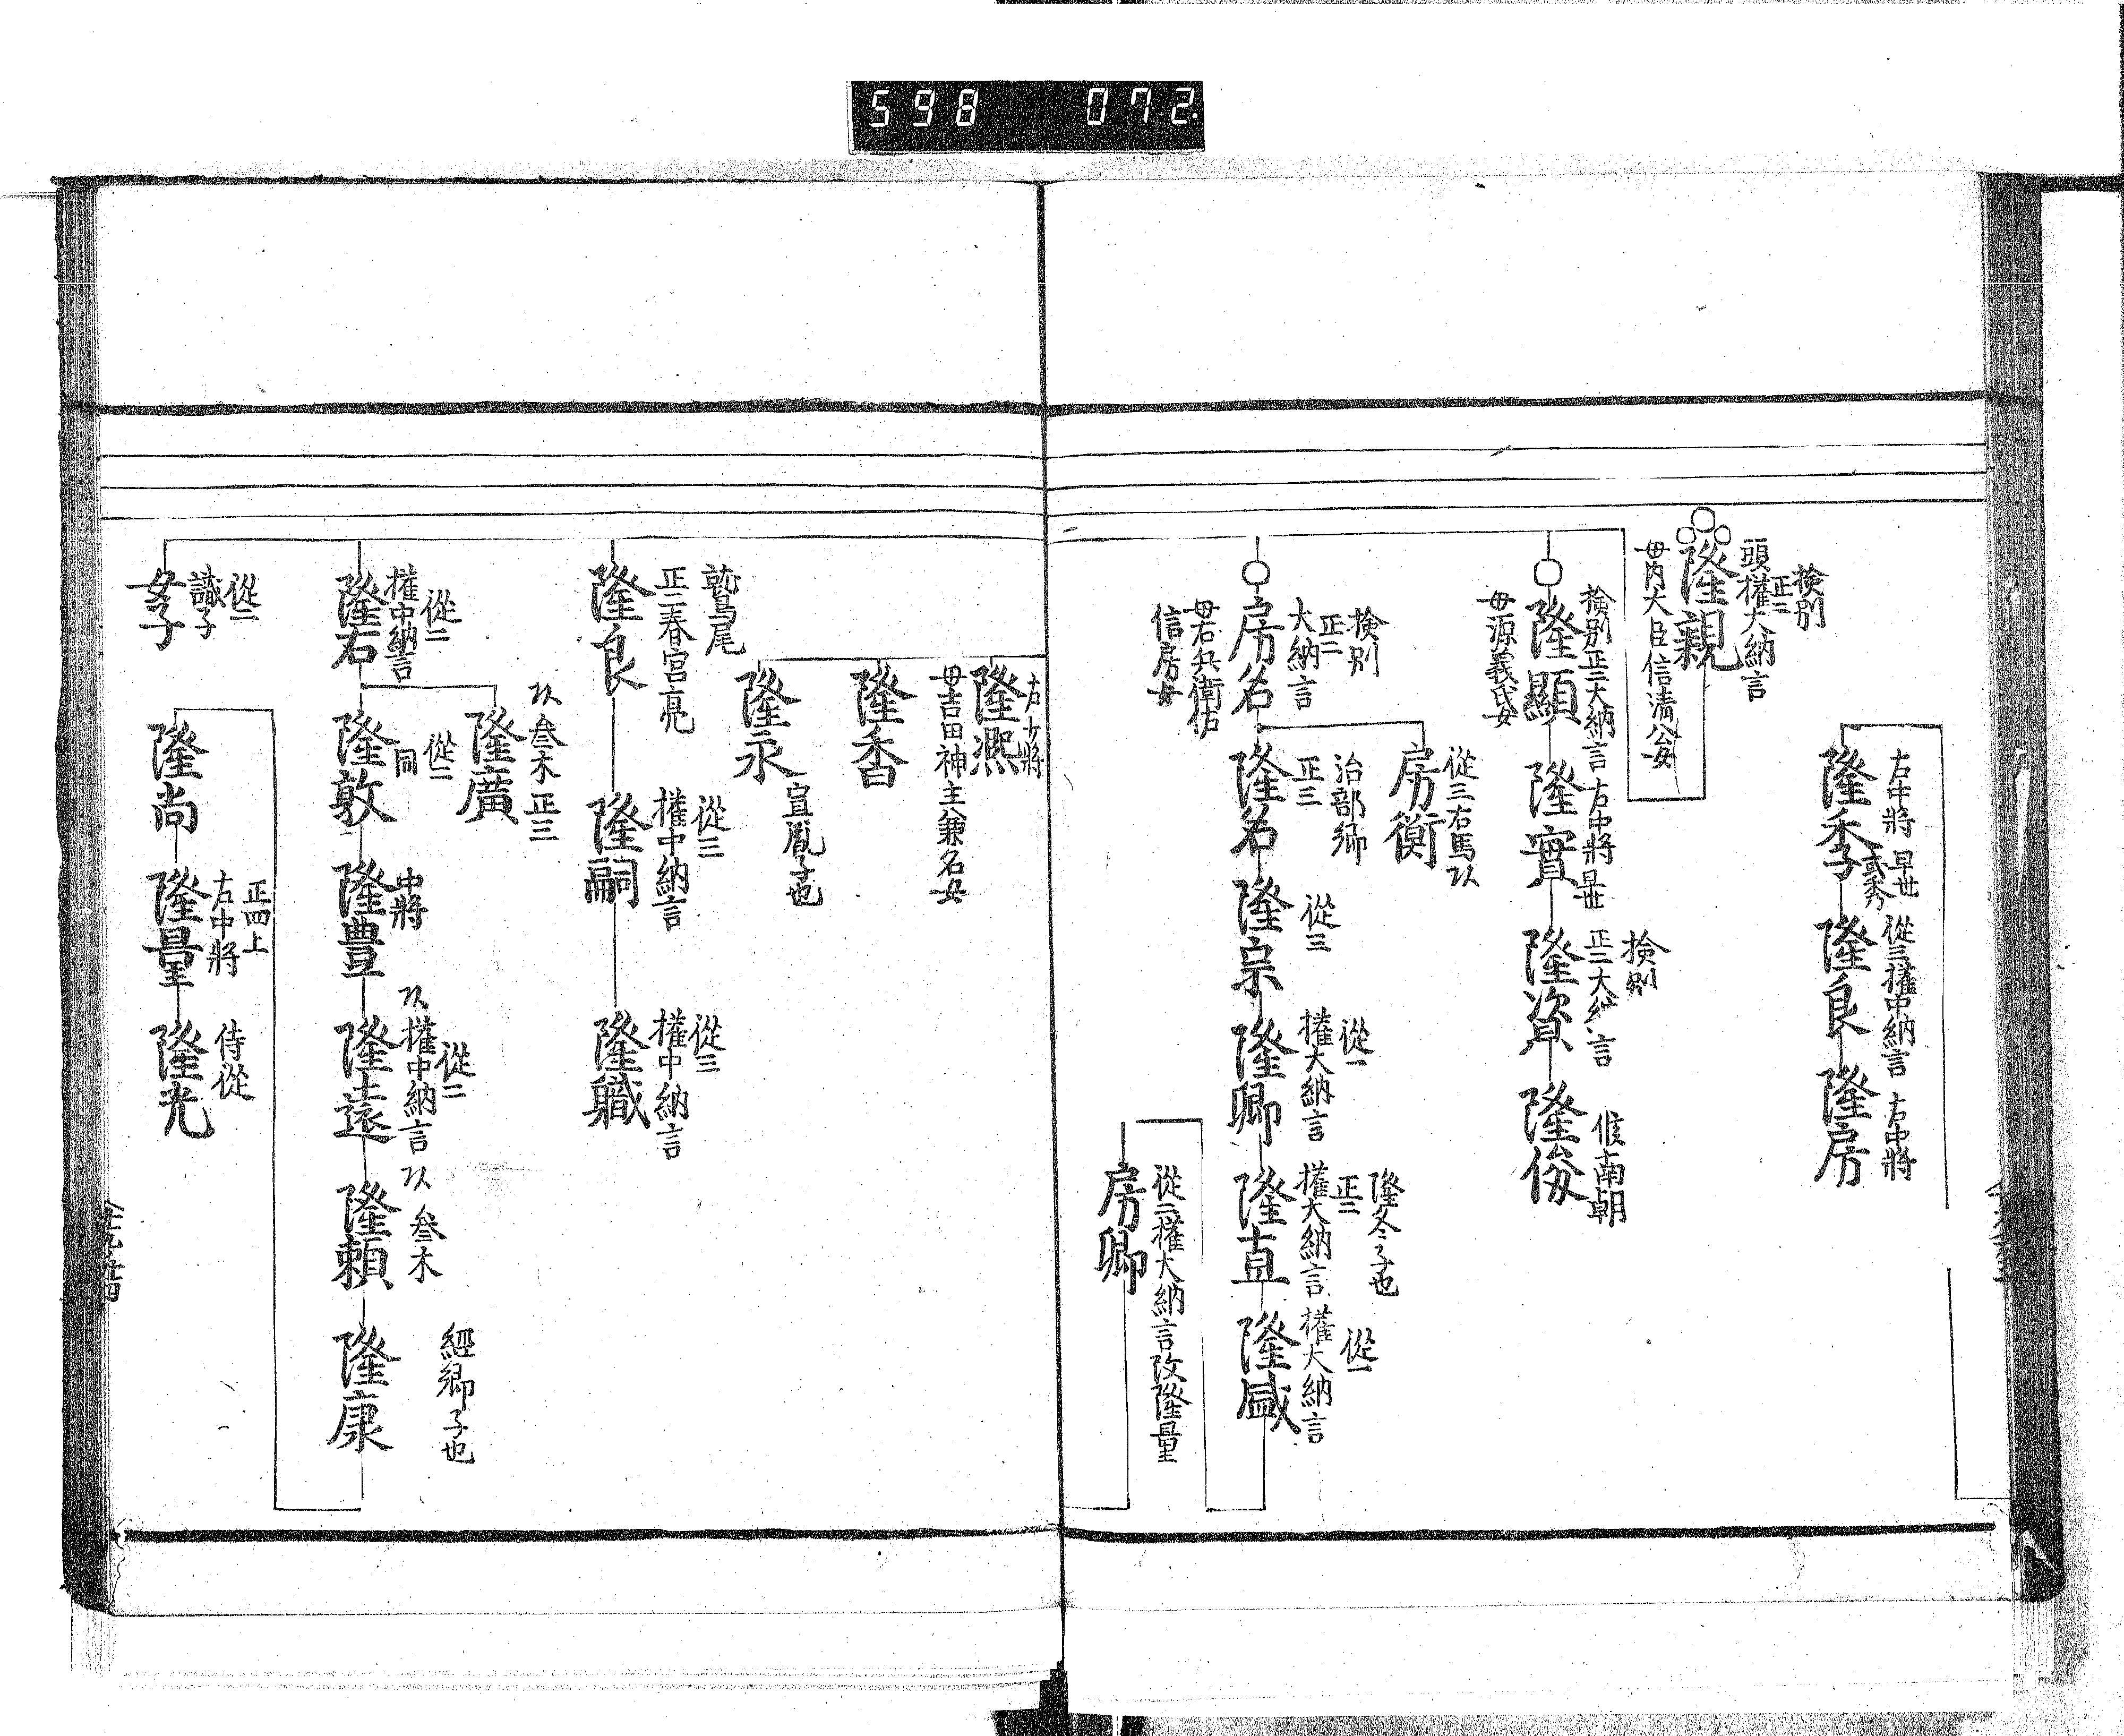 598 072
右中將 早世
隆季
或秀
從三權中納言
隆良
右中將
隆房
檢別
正二
頭權大納言
隆親
母內大臣信清公女
檢別正二大納言
隆顯
母源義氏女
右中將 早世
隆實
檢別
正二大納言
隆資
候南朝
隆俊
檢別
正二
大納言
房名
母右兵衛佐
信房女
從三右馬頭
房衡
治部卿
正三
隆名
從三
隆宗
從一
權大納言
隆卿
隆冬子也
正二
權大納言
隆直
從一
權大納言
隆盛
從二權大納言改隆量
房卿
右少將
隆熈
母吉田神主兼名女
隆香
隆永
宣胤子也
鷲尾
正二春宮亮
隆良
從三
權中納言
隆嗣
從三
權中納言
隆職
從二
權中納言
隆右
叄木正三
隆廣
從二
同
隆敦
中將
隆豊
從二
權中納言
隆遠
叄木
隆頼
經卿子也
隆康
隆尚
正四上
右中將
隆量
侍從
隆光
從二
識子
女子